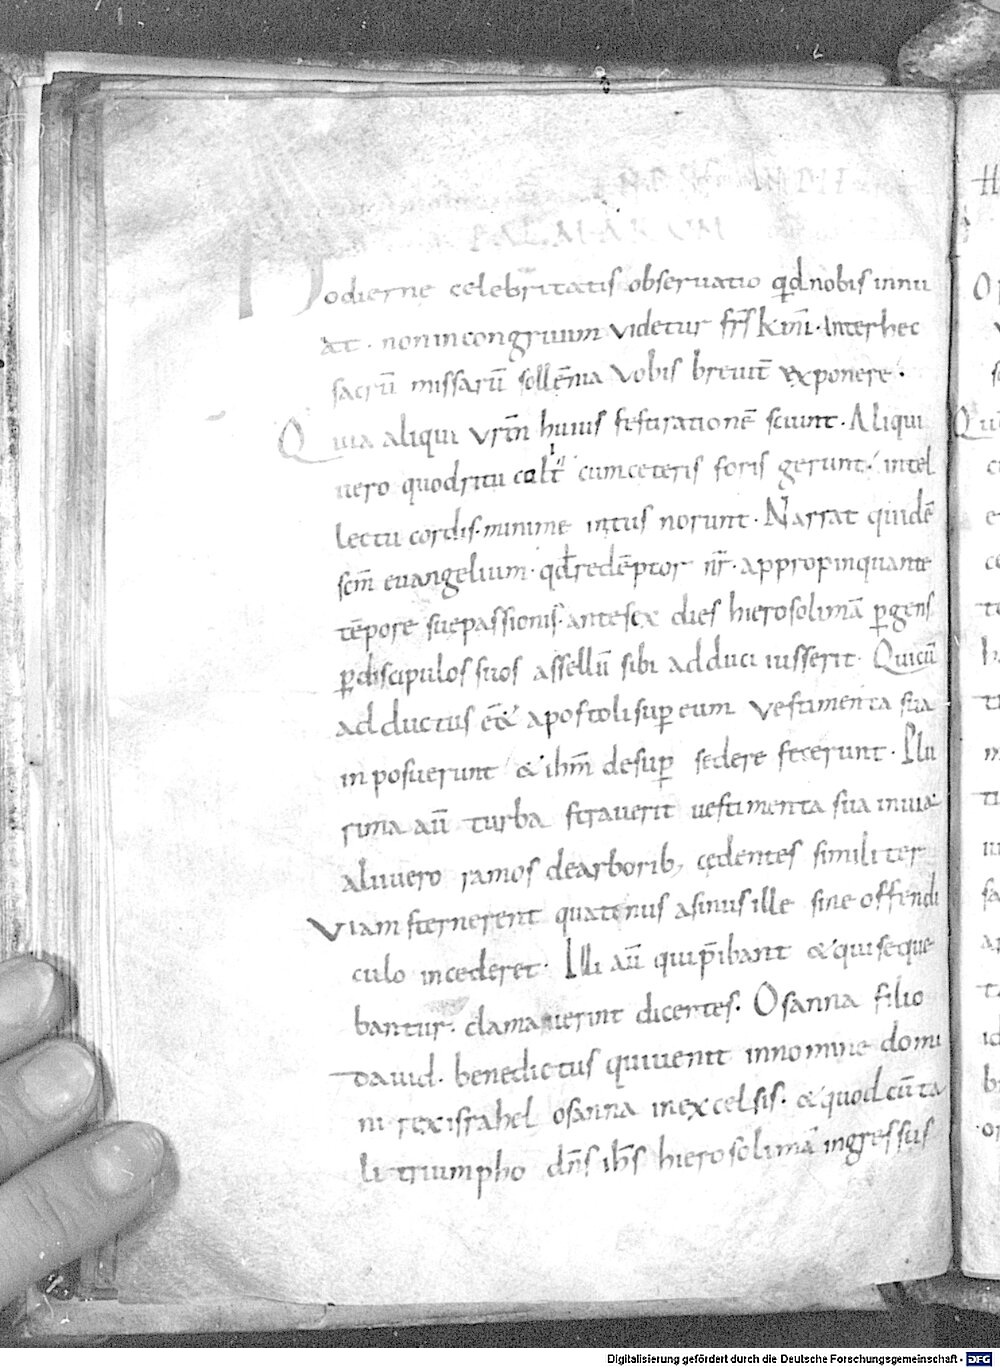 IN DIE
PALMARUM
Hodierne celebritatis obseruatio qd nobis innu
at. non incongruum videtur frs kmi. Inter hec
sacrū missarū sollēnia vobis breuit̄ exponere.
Quia aliqui vr̄m huius festi rationē sciunt. Aliqui
uero quod ritu cum ceteris foris gerunt. intel
lectu cordis. minime intus norunt. Narrat quidē
scm̄ euangelium. qd redēptor nr̄. appropinquante
tēpore sue passionis. ante sex dies hierosolimā ꝑgens
ꝑ discipulos suos assellū sibi adduci iusserit. Qui cū
adductus eēt& apostoli suꝑ eum vestimenta sua
inposuerunt & ihm̄ desuꝑ sedere fecerunt. Plu
rima aū turba strauerit uestimenta sua in uia.
alii uero ramos de arborib; cędentes similiter
viam sternerent quatenus asinus ille sine offendi
culo incederet. Illi aū qui p̄ibant & qui seque
bantur. clamauerint dicentes. Osanna filio
dauid. benedictus qui uenit in nomine domi
ni rex israhel osanna in excelsis. & quod cū ta
li triumpho dn̄s ihs̄ hierosolimā ingressus
Digitalisierung gefördert durch die Deutsche Forschungsgemeinschaft - DFG